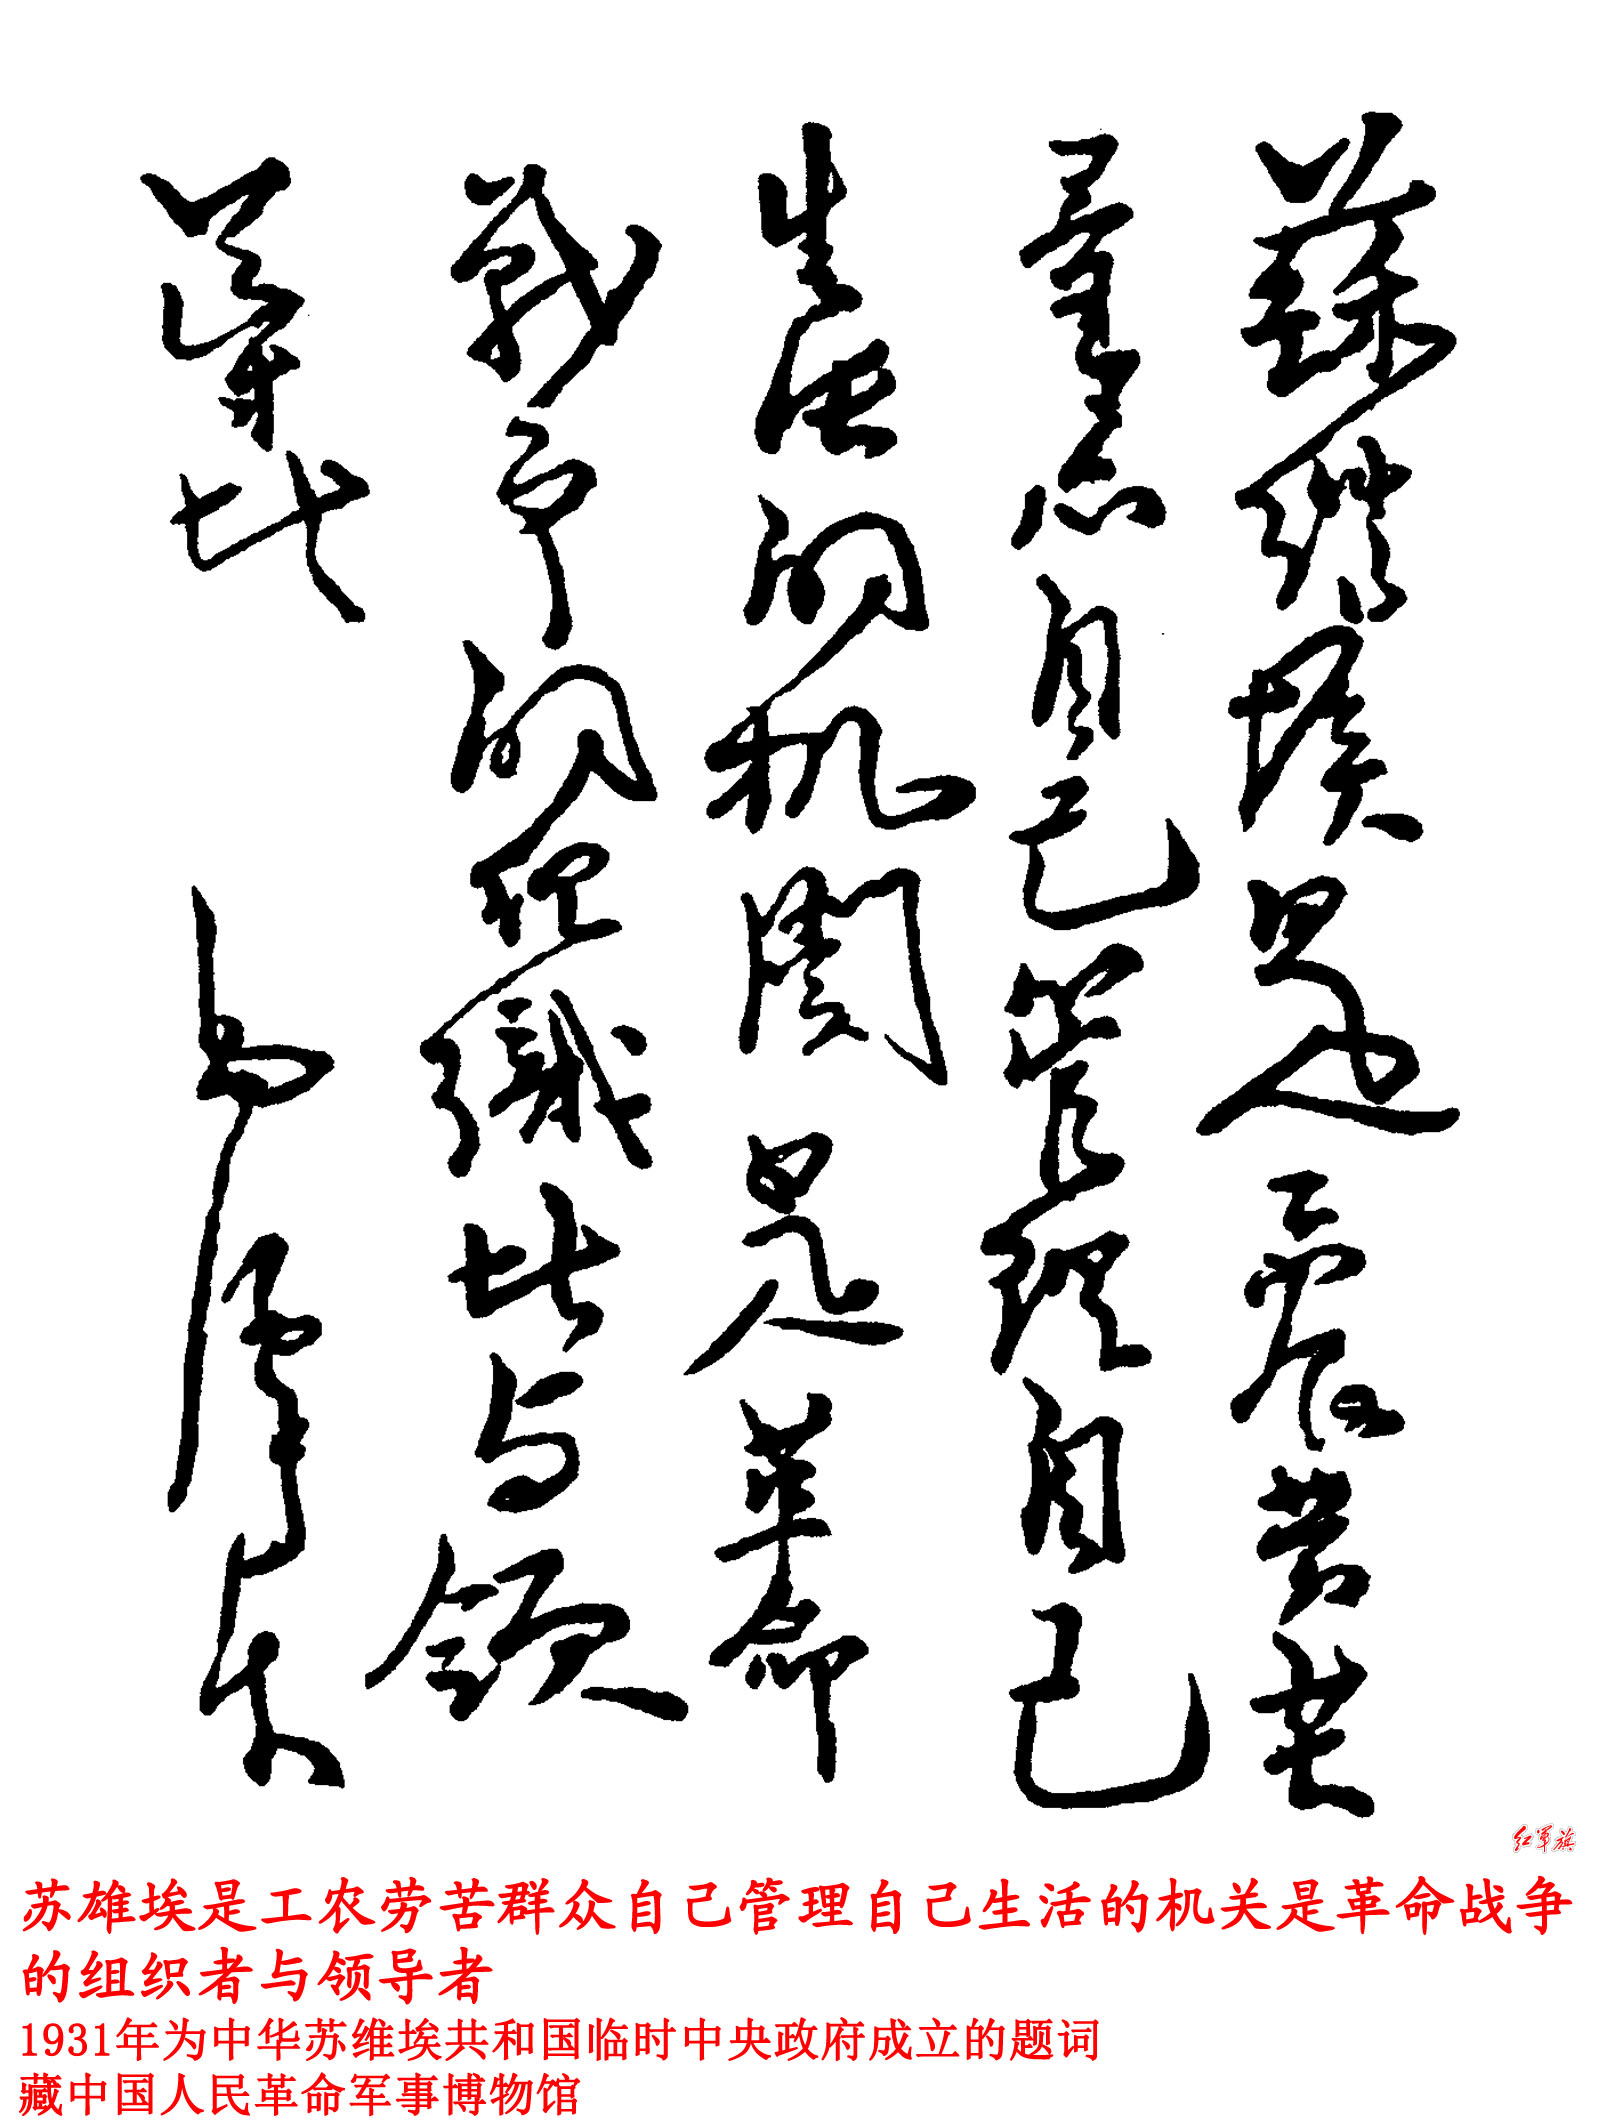 蘇維埃是工農劳苦
羣众自己管理自己
生活的机關是革命
戰争的组織者与领
導者 毛泽东
红军旗
苏雄埃是工农劳苦群众自己管理自己生活的机关是革命战争
的组织者与领导者
1931年为中华苏维埃共和国临时中央政府成立的题词
藏中国人民革命军事博物馆